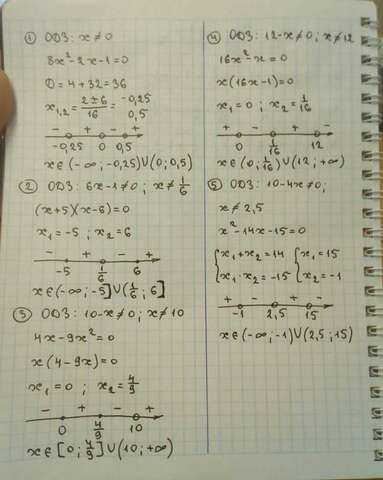 ① ОДЗ: x≠0
8x²-2x-1=0
D=4+32=36
x₁,₂=(2±6)/16= -0,25
0,5
- + - +
-0,25 0 0,5
x∈(-∞;-0,25)∪(0;0,5)
② ОДЗ: 6x-1≠0; x≠1/6
(x+5)(x-6)=0
x₁=-5; x₂=6
- + - +
-5 1/6 6
x∈(-∞;-5]∪(1/6;6]
③ ОДЗ: 10-x≠0; x≠10
4x-9x²=0
x(4-9x)=0
x₁=0; x₂=4/9
- + - +
0 4/9 10
x∈[0;4/9]∪(10;+∞)
④ ОДЗ: 12-x≠0; x≠12
16x²-x=0
x(16x-1)=0
x₁=0; x₂=1/16
- + - +
0 1/16 12
x∈(0;1/16)∪(12;+∞)
⑤ ОДЗ: 10-4x≠0;
x≠2,5
x²-14x-15=0
{x₁+x₂=14 {x₁=15
{x₁·x₂=-15 {x₂=-1
+ - + -
-1 2,5 15
x∈(-∞;-1)∪(2,5;15)